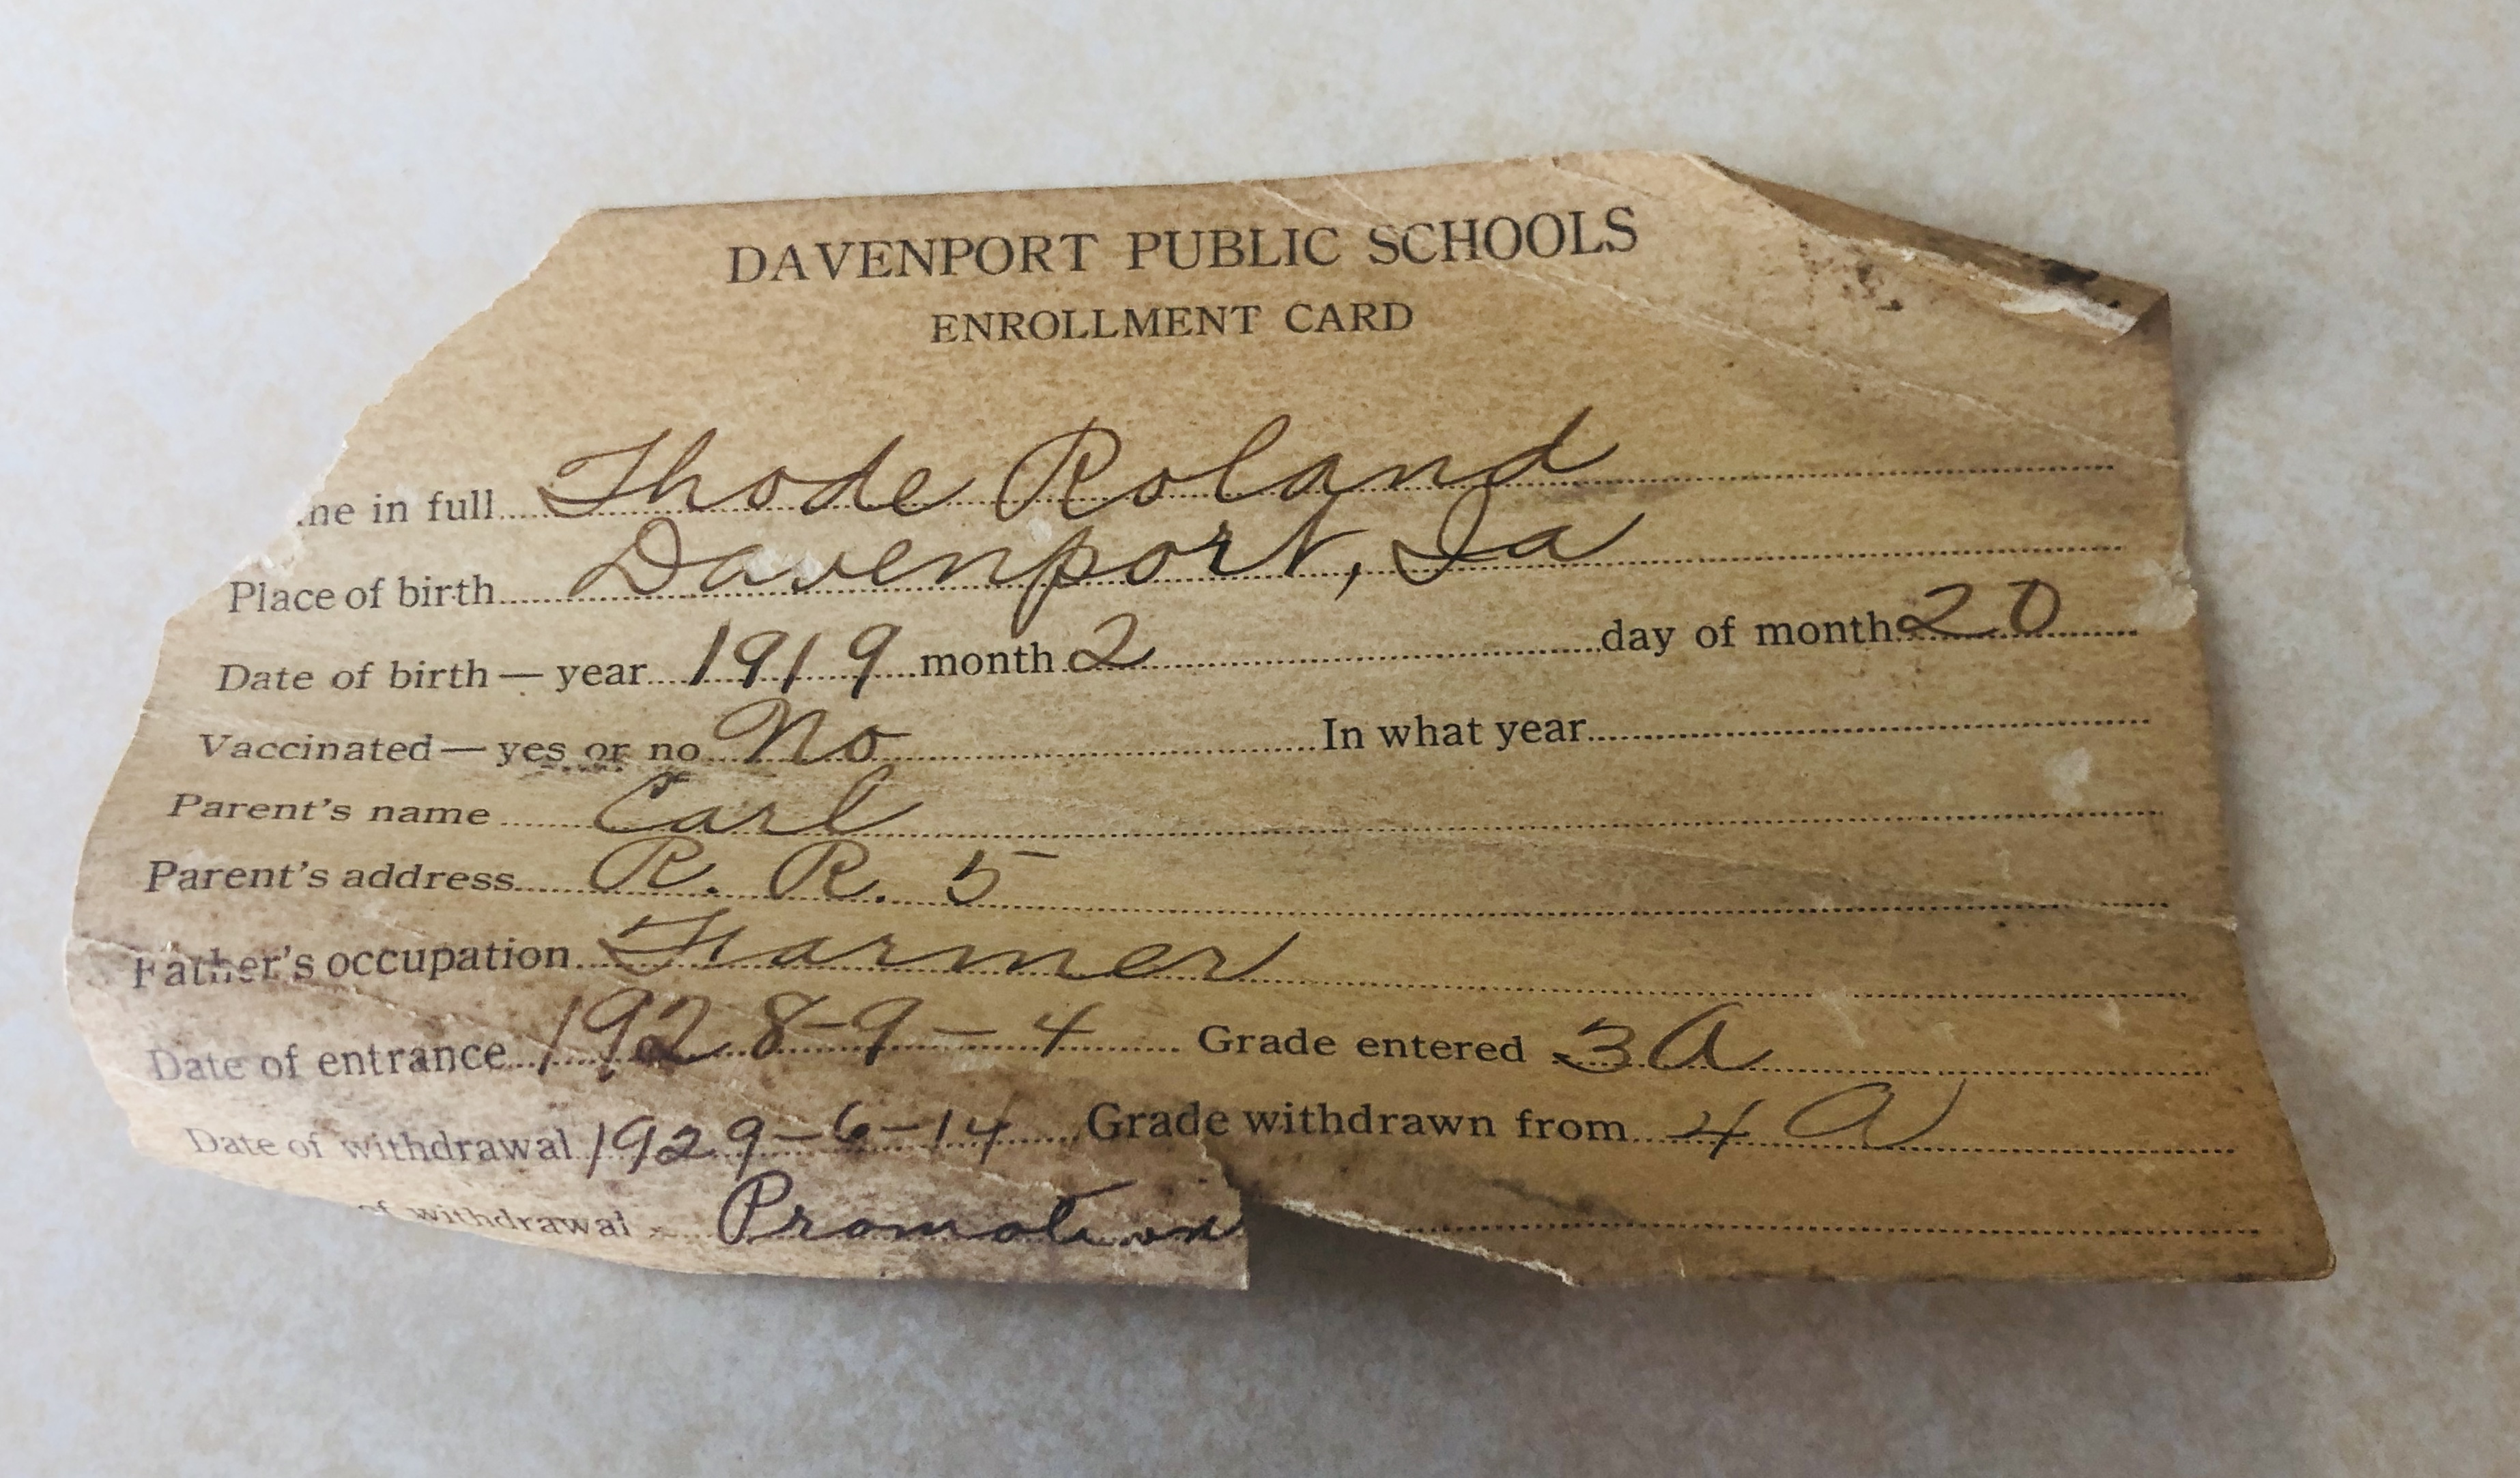 DAVENPORT PUBLIC SCHOOLS
ENROLLMENT CARD
me in full Thode Roland
Place of birth Davenport, Ia
Date of birth — year 1919 month 2 day of month 20
Vaccinated — yes or no No In what year
Parent's name Carl
Parent's address R. R. 5
Father's occupation Farmer
Date of entrance 1928-9-4 Grade entered 3A
Date of withdrawal 1929-6-14 Grade withdrawn from 4A
of withdrawal Promotion